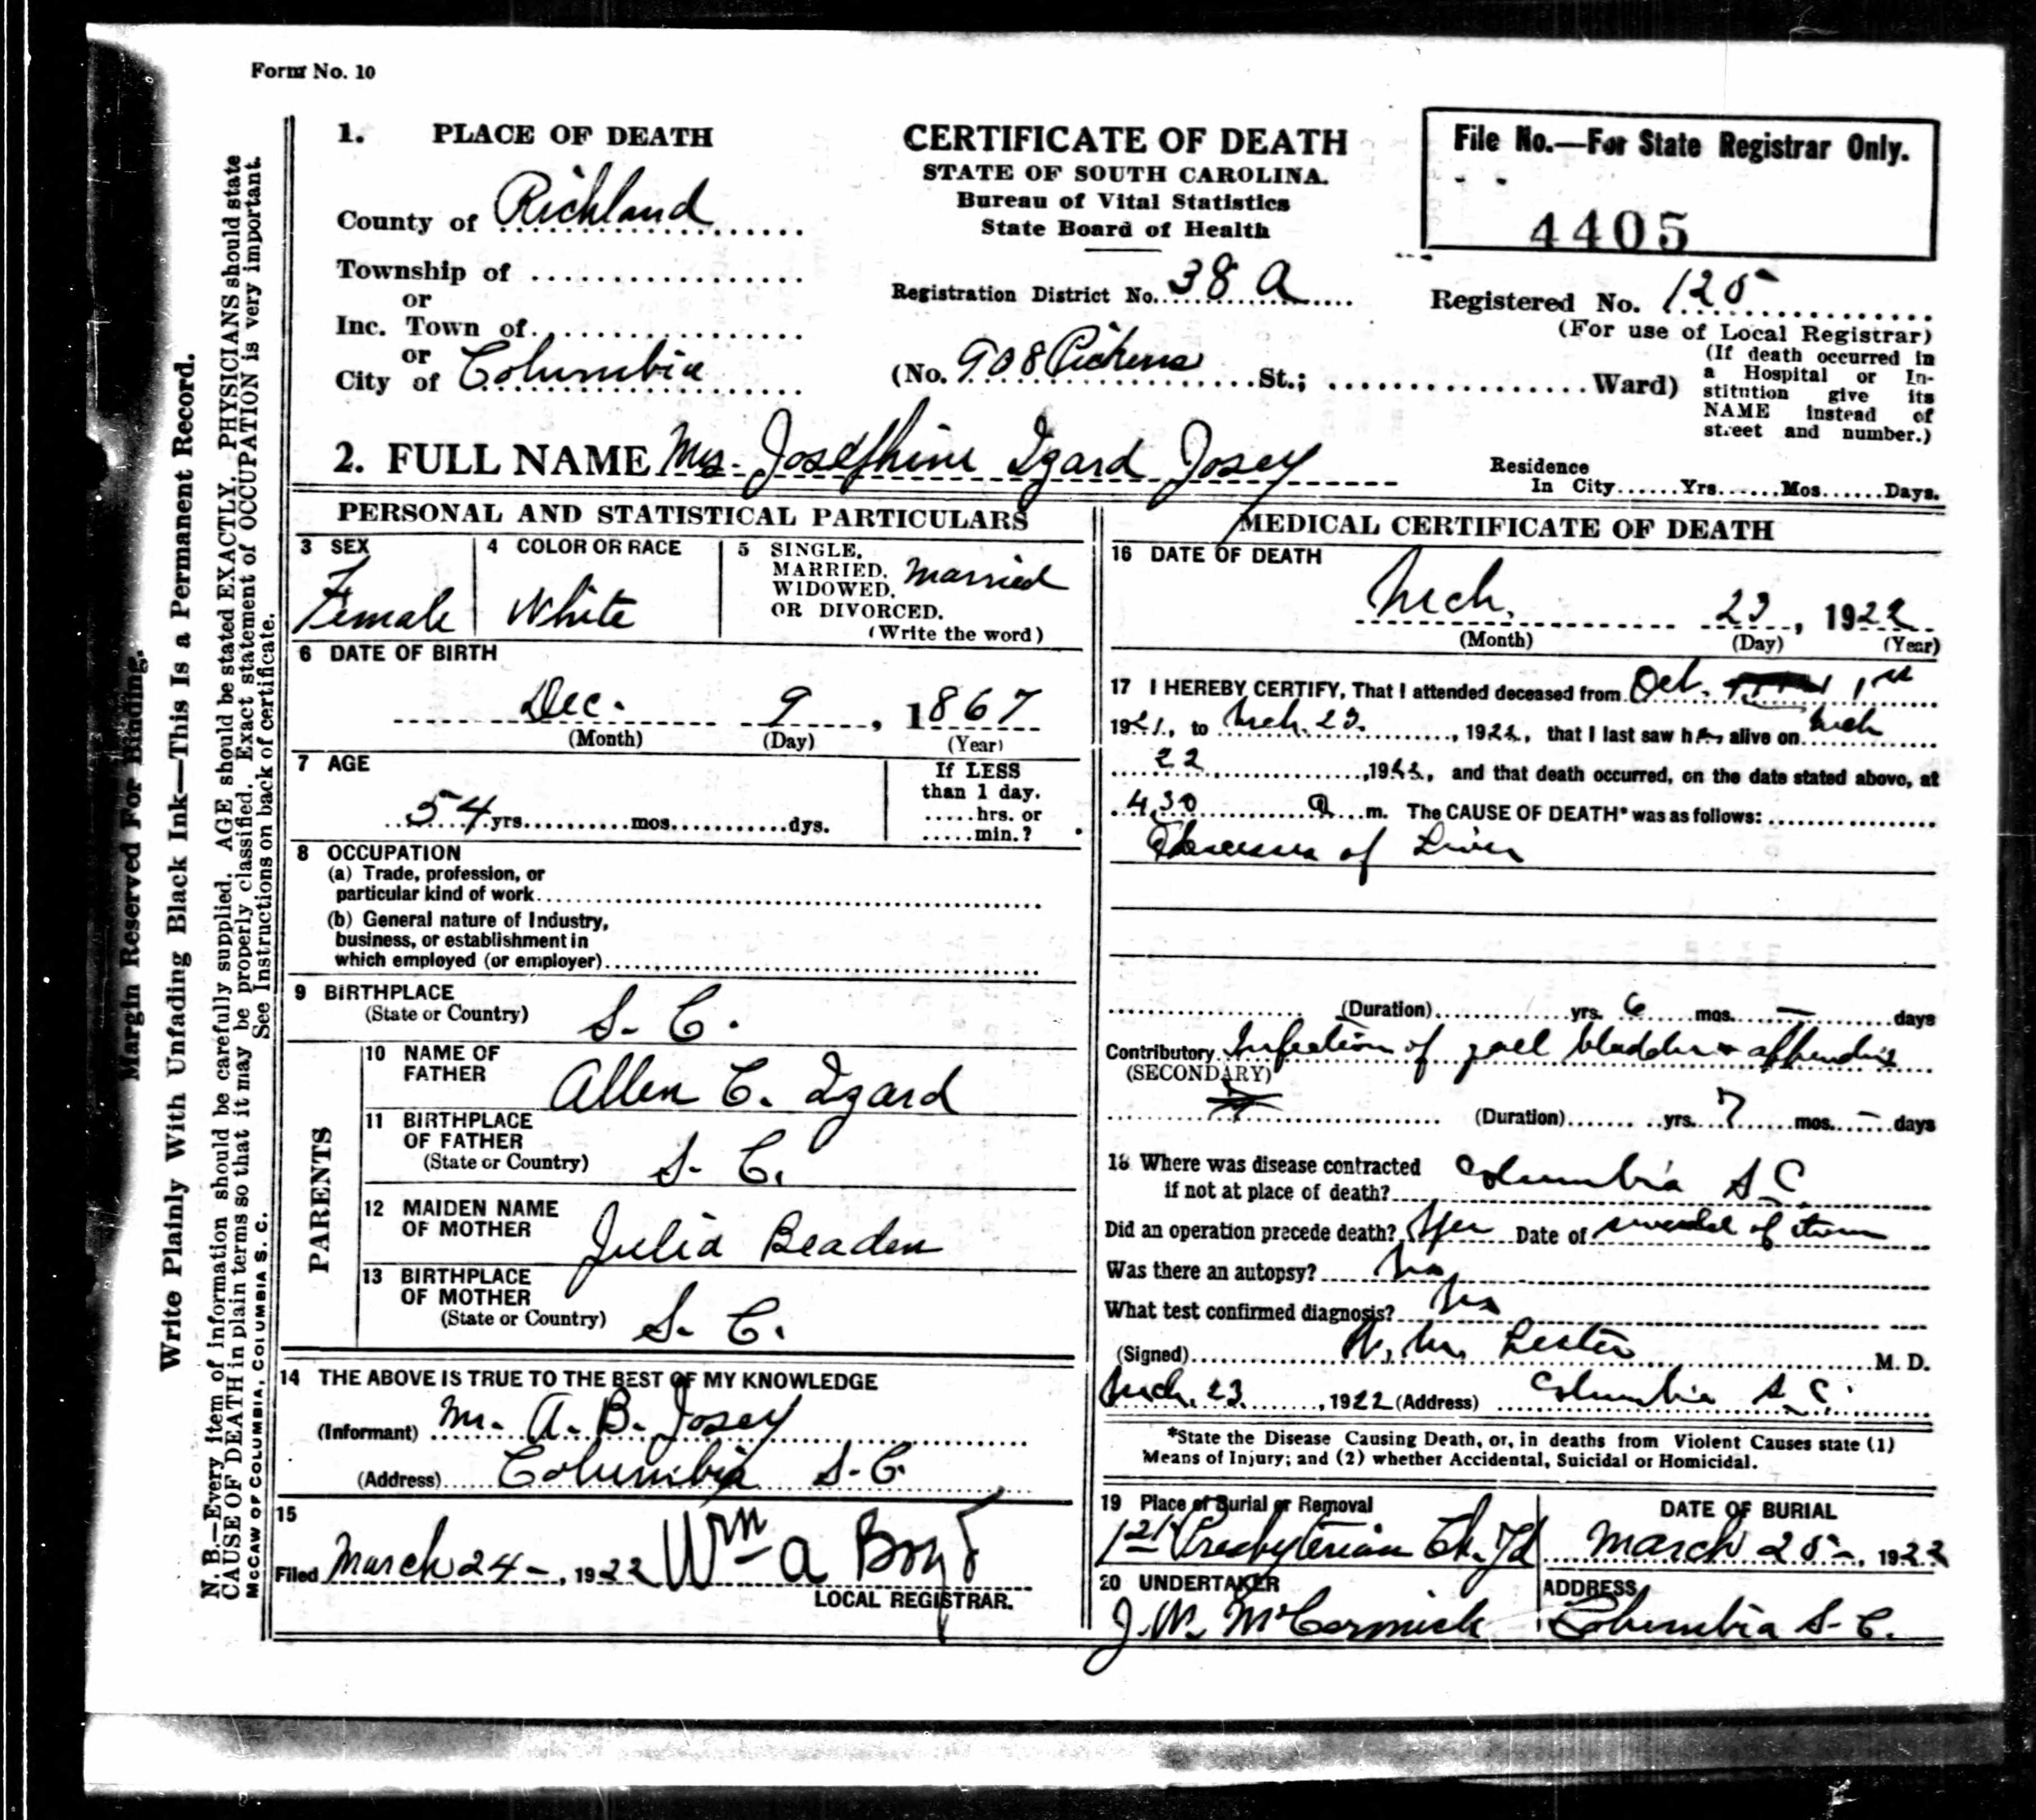 Form No. 10
1. PLACE OF DEATH
County of Richland
Township of
or
Inc. Town of
or
City of Columbia
CERTIFICATE OF DEATH
STATE OF SOUTH CAROLINA.
Bureau of Vital Statistics
State Board of Health
Registration District No. 38 A
(No. 908 Pickens St.; Ward)
File No.—For State Registrar Only.
4405
Registered No. 125
(For use of Local Registrar)
(If death occurred in
a Hospital or In-
stitution give its
NAME instead of
street and number.)
2. FULL NAME Mrs. Josephine Izard Josey
Residence
In City Yrs. Mos. Days.
PERSONAL AND STATISTICAL PARTICULARS
3 SEX
Female
4 COLOR OR RACE
White
5 SINGLE,
MARRIED,
WIDOWED,
OR DIVORCED.
(Write the word)
married
6 DATE OF BIRTH
Dec. 9, 1867
(Month) (Day) (Year)
7 AGE
54 yrs. mos. dys.
If LESS
than 1 day.
hrs. or
min.?
8 OCCUPATION
(a) Trade, profession, or
particular kind of work
(b) General nature of Industry,
business, or establishment in
which employed (or employer)
9 BIRTHPLACE
(State or Country) S. C.
PARENTS
10 NAME OF
FATHER Allen C. Izard
11 BIRTHPLACE
OF FATHER
(State or Country) S. C.
12 MAIDEN NAME
OF MOTHER Julia Beaden
13 BIRTHPLACE
OF MOTHER
(State or Country) S. C.
14 THE ABOVE IS TRUE TO THE BEST OF MY KNOWLEDGE
(Informant) Mr. A. B. Josey
(Address) Columbia S. C.
15
Filed March 24-, 1922 Wm A Boyd
LOCAL REGISTRAR.
MEDICAL CERTIFICATE OF DEATH
16 DATE OF DEATH
Mch. 23, 1922
(Month) (Day) (Year)
17 I HEREBY CERTIFY, That I attended deceased from Oct. 1st
1921, to Mch. 23., 1922, that I last saw her alive on Mch
22, 1922, and that death occurred, on the date stated above, at
4.30 a m. The CAUSE OF DEATH* was as follows:
Abscesses of Liver
(Duration) yrs. 6 mos. — days
Contributory Infection of gall bladder + appendix
(SECONDARY)
(Duration) yrs. 7 mos. — days
18 Where was disease contracted
if not at place of death? Columbia S. C.
Did an operation precede death? Yes Date of several of them
Was there an autopsy? No
What test confirmed diagnosis?
(Signed) Lester M. D.
Mch. 23, 1922 (Address) Columbia S. C.
*State the Disease Causing Death, or, in deaths from Violent Causes state (1)
Means of Injury; and (2) whether Accidental, Suicidal or Homicidal.
19 Place of Burial or Removal
1st Presbyterian Ch. Yd
DATE OF BURIAL
March 25-, 1922
20 UNDERTAKER
J. W. McCormick
ADDRESS
Columbia S. C.
Margin Reserved For Binding.
Write Plainly With Unfading Black Ink—This Is a Permanent Record.
N. B.—Every item of information should be carefully supplied. AGE should be stated EXACTLY. PHYSICIANS should state
CAUSE OF DEATH in plain terms so that it may be properly classified. Exact statement of OCCUPATION is very important.
See Instructions on back of certificate.
McCAW OF COLUMBIA, COLUMBIA S. C.